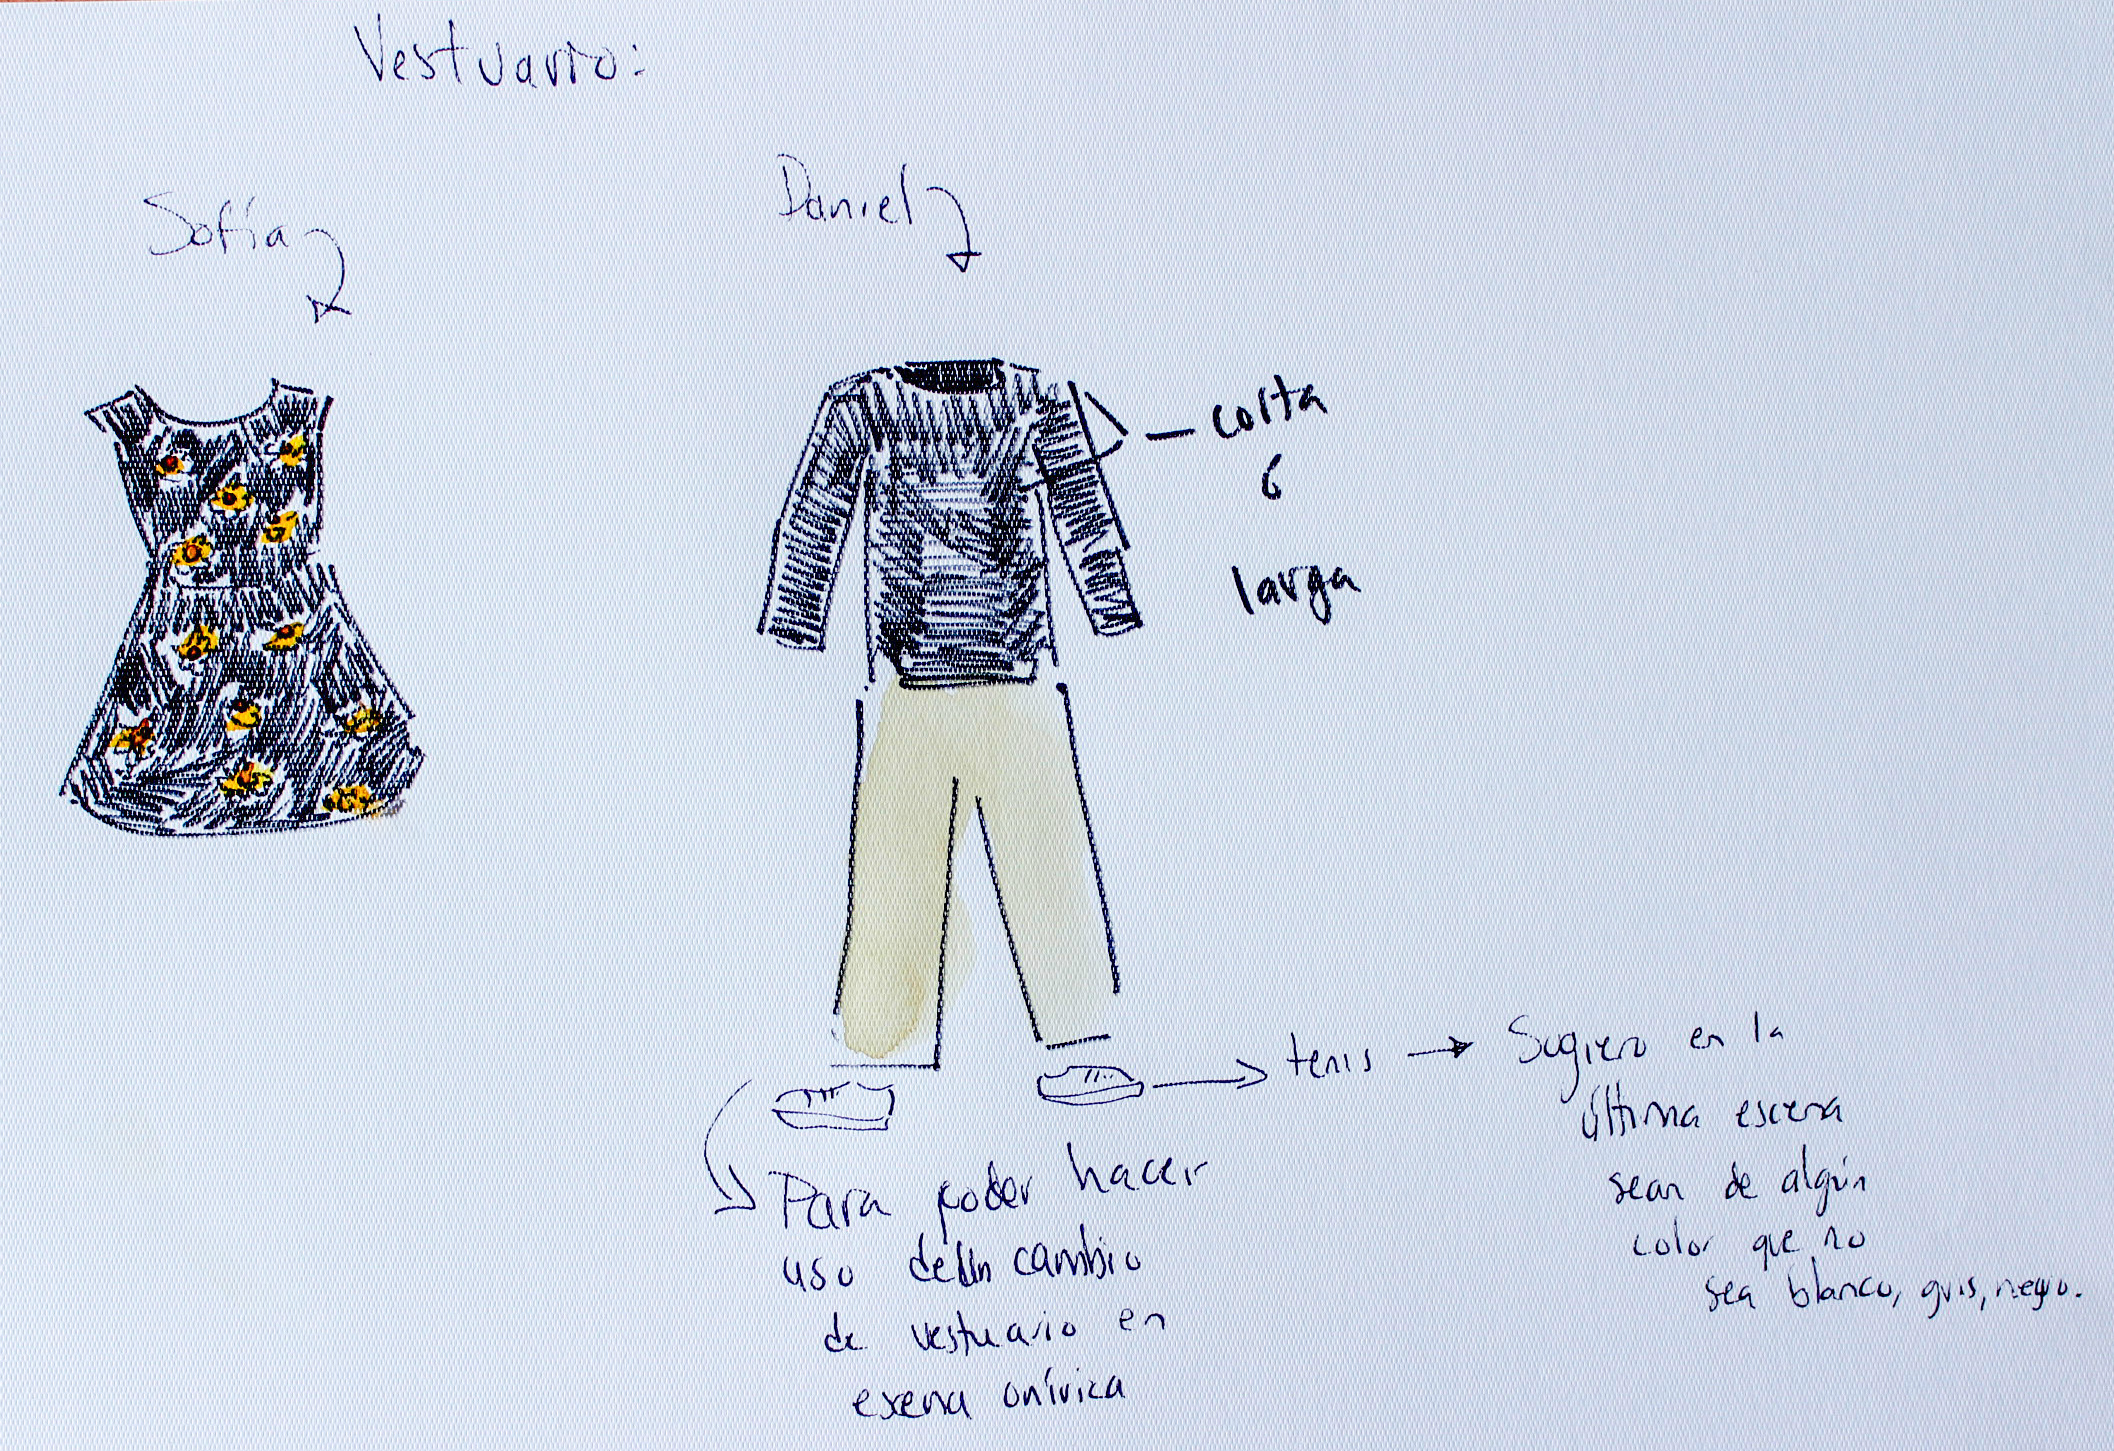 Vestuario:
Sofía
Daniel
corta
ó
larga
tenis
Sugiero en la
última escena
sean de algún
color que no
sea blanco, gris, negro.
Para poder hacer
uso de un cambio
de vestuario en
exena onírica